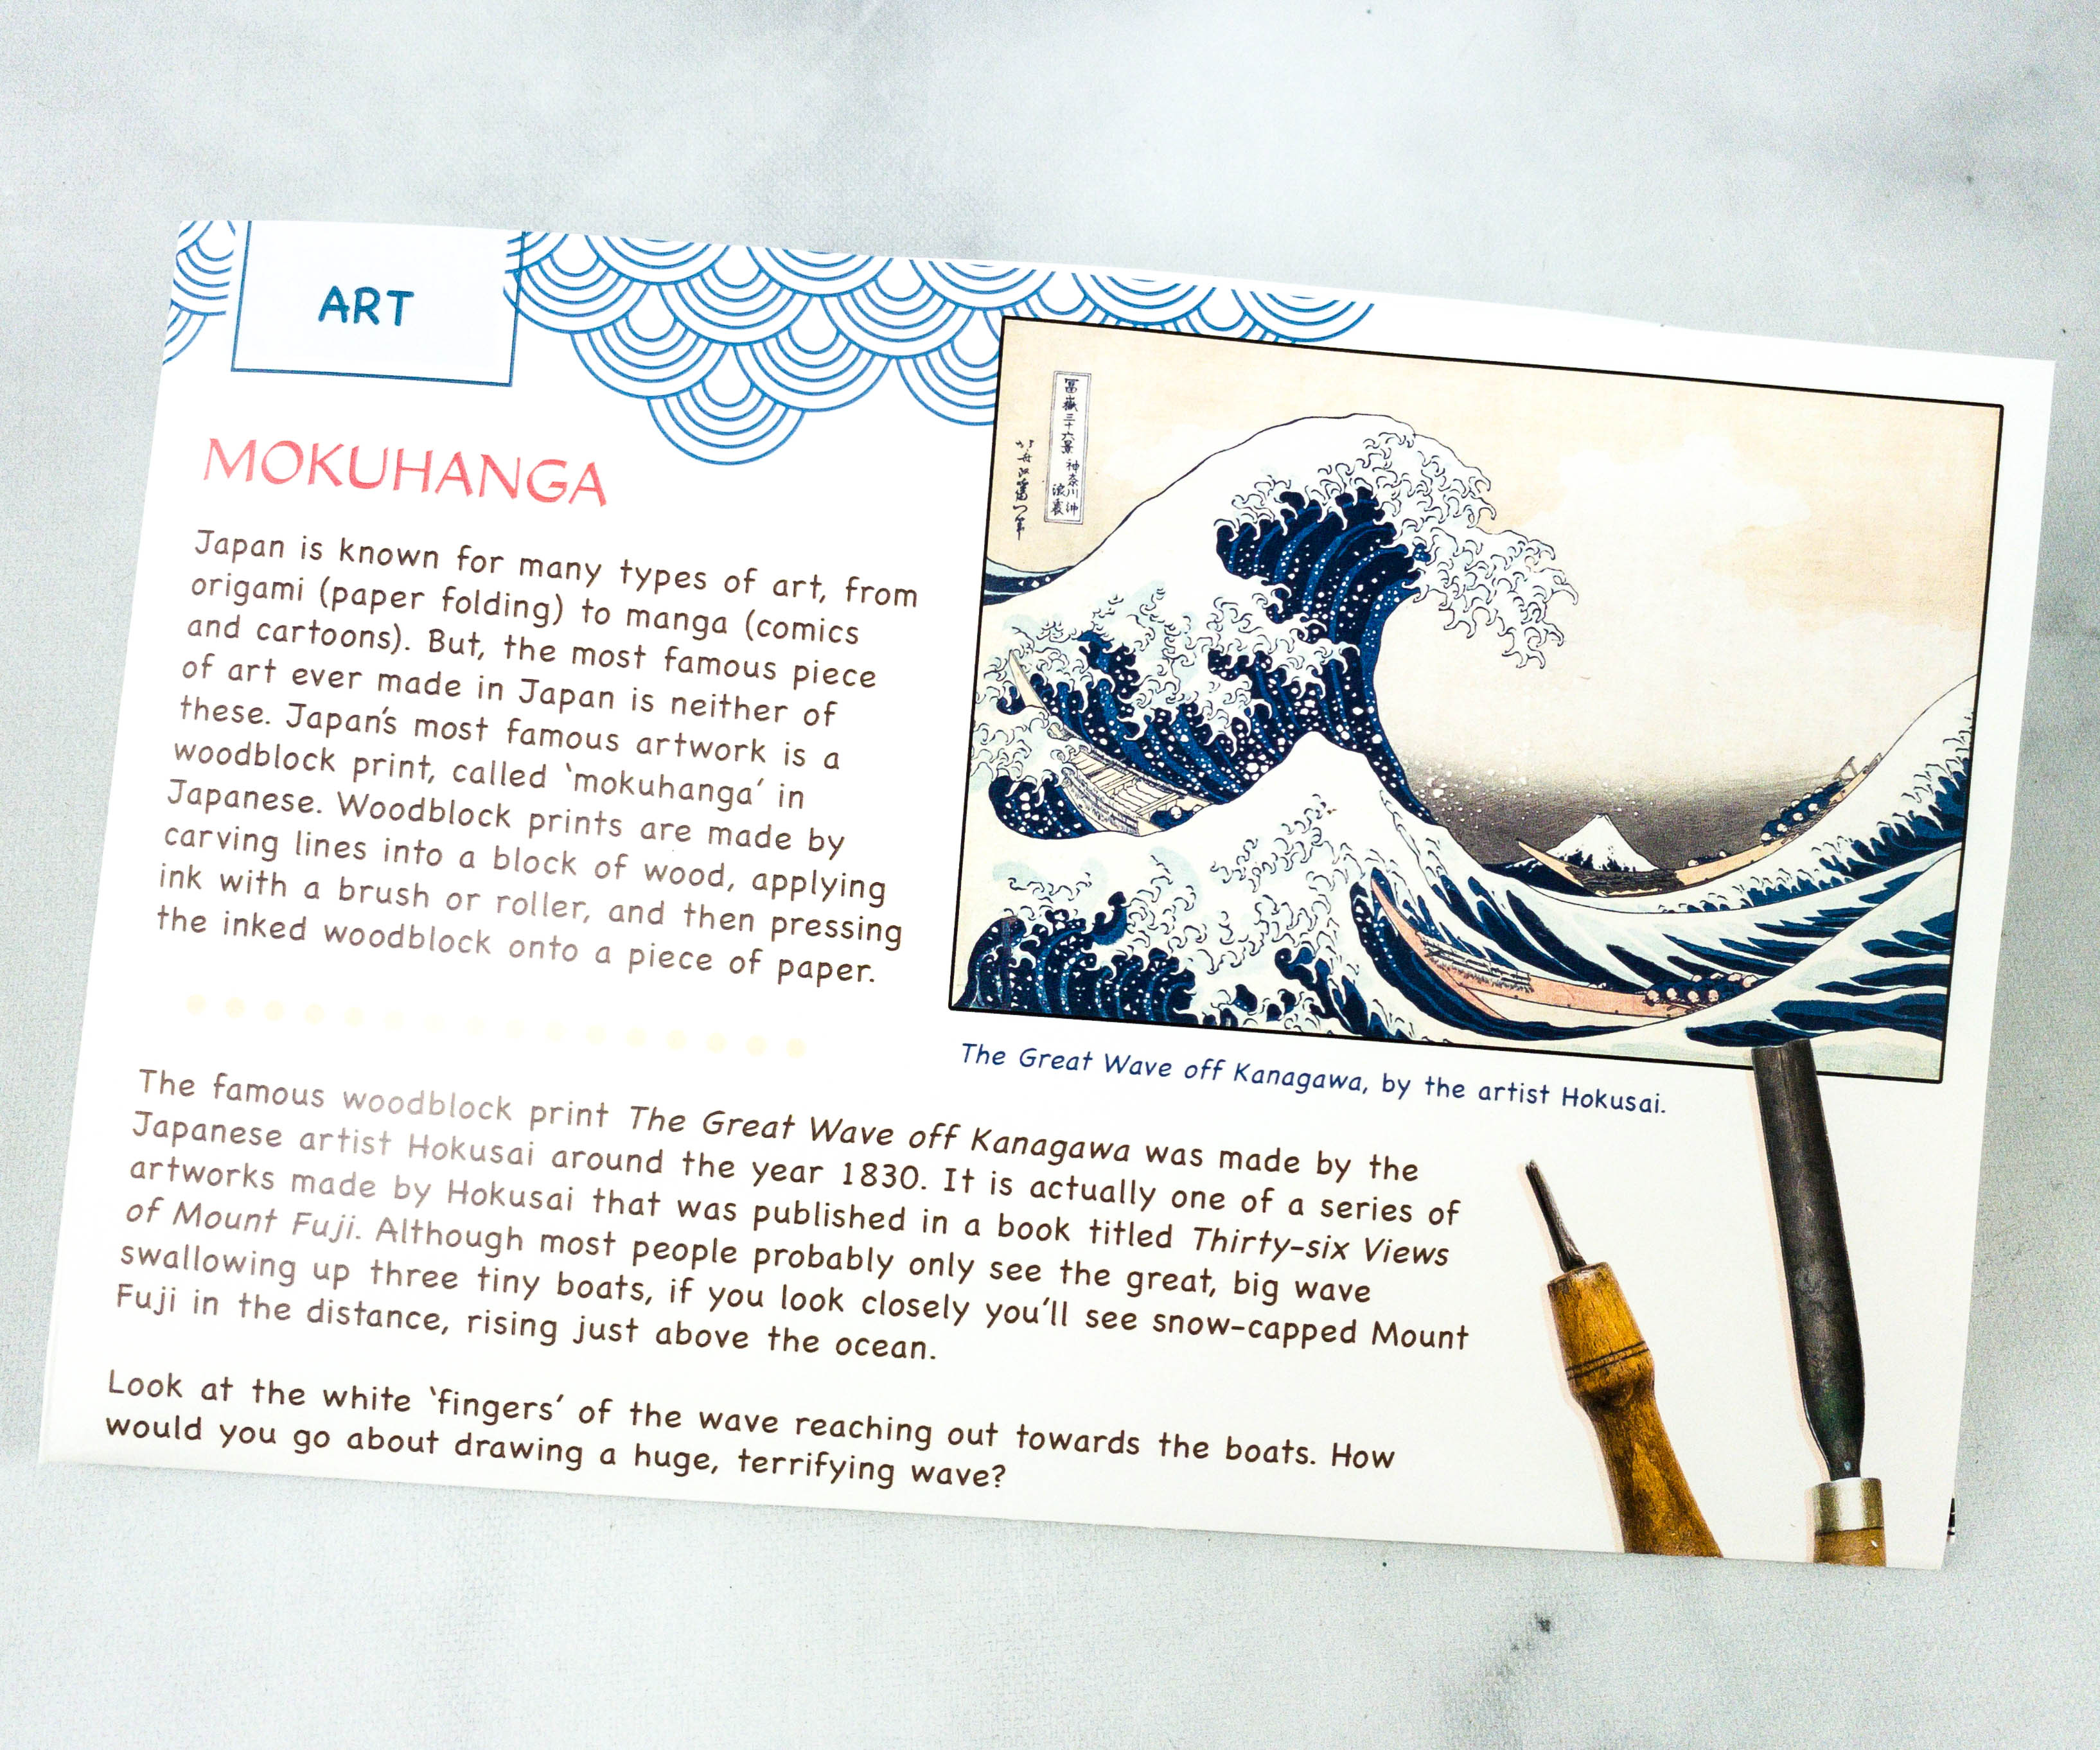 ART
MOKUHANGA
Japan is known for many types of art, from
origami (paper folding) to manga (comics
and cartoons). But, the most famous piece
of art ever made in Japan is neither of
these. Japan's most famous artwork is a
woodblock print, called 'mokuhanga' in
Japanese. Woodblock prints are made by
carving lines into a block of wood, applying
ink with a brush or roller, and then pressing
the inked woodblock onto a piece of paper.
冨嶽三十六景 神奈川沖
浪裏
The Great Wave off Kanagawa, by the artist Hokusai.
The famous woodblock print The Great Wave off Kanagawa was made by the
Japanese artist Hokusai around the year 1830. It is actually one of a series of
artworks made by Hokusai that was published in a book titled Thirty-six Views
of Mount Fuji. Although most people probably only see the great, big wave
swallowing up three tiny boats, if you look closely you'll see snow-capped Mount
Fuji in the distance, rising just above the ocean.
Look at the white 'fingers' of the wave reaching out towards the boats. How
would you go about drawing a huge, terrifying wave?